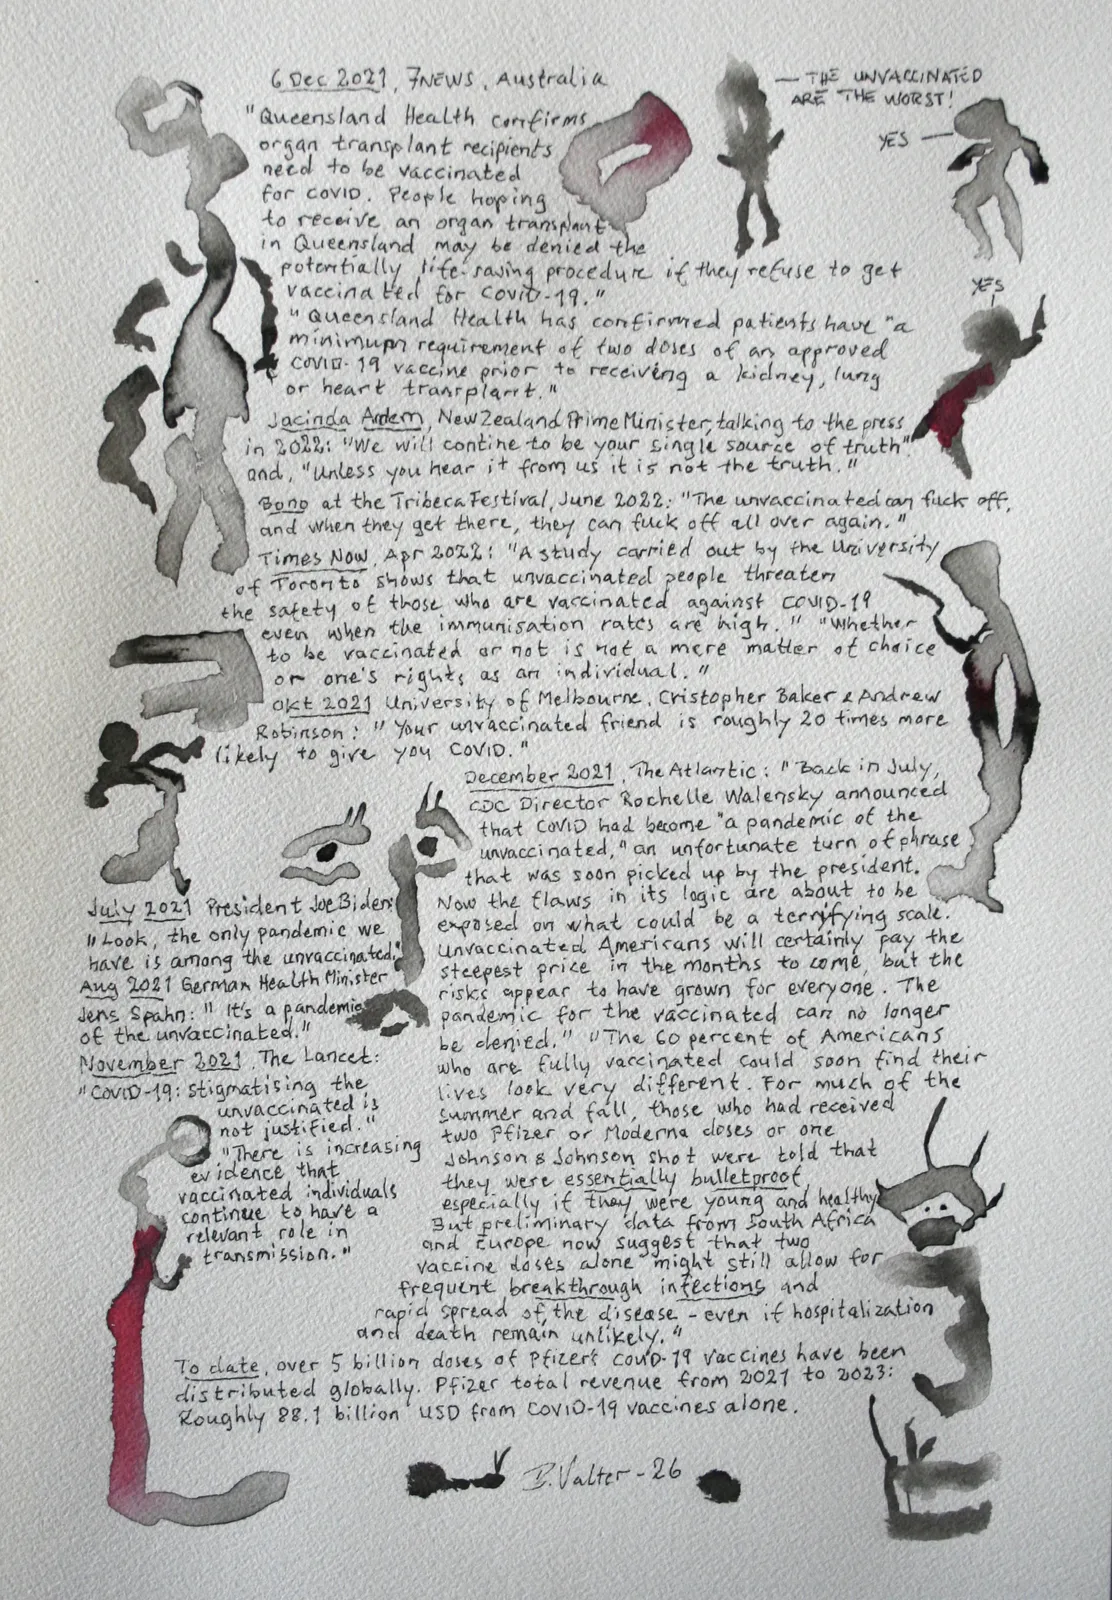 6 Dec 2021, 7NEWS, Australia
— THE UNVACCINATED
ARE THE WORST!
YES —
YES
"Queensland Health confirms
organ transplant recipients
need to be vaccinated
for COVID. People hoping
to receive an organ transplant
in Queensland may be denied the
potentially life-saving procedure if they refuse to get
vaccinated for COVID-19."
"Queensland Health has confirmed patients have "a
minimum requirement of two doses of an approved
COVID-19 vaccine prior to receiving a kidney, lung
or heart transplant."
Jacinda Ardern, New Zealand Prime Minister, talking to the press
in 2022: "We will contine to be your single source of truth"
and, "Unless you hear it from us it is not the truth."
Bono at the Tribeca Festival, June 2022: "The unvaccinated can fuck off,
and when they get there, they can fuck off all over again."
Times Now, Apr 2022: "A study carried out by the University
of Toronto shows that unvaccinated people threaten
the safety of those who are vaccinated against COVID-19
even when the immunisation rates are high." "Whether
to be vaccinated or not is not a mere matter of choice
or one's rights as an individual."
Okt 2021 University of Melbourne, Cristopher Baker & Andrew
Robinson: "Your unvaccinated friend is roughly 20 times more
likely to give you COVID."
December 2021, The Atlantic: "Back in July,
CDC Director Rochelle Walensky announced
that COVID had become "a pandemic of the
unvaccinated," an unfortunate turn of phrase
that was soon picked up by the president.
Now the flaws in its logic are about to be
exposed on what could be a terrifying scale.
Unvaccinated Americans will certainly pay the
steepest price in the months to come, but the
risks appear to have grown for everyone. The
pandemic for the vaccinated can no longer
be denied." "The 60 percent of Americans
who are fully vaccinated could soon find their
lives look very different. For much of the
summer and fall, those who had received
two Pfizer or Moderna doses or one
Johnson & Johnson shot were told that
they were essentially bulletproof,
especially if they were young and healthy
But preliminary data from South Africa
and Europe now suggest that two
vaccine doses alone might still allow for
frequent breakthrough infections and
rapid spread of the disease - even if hospitalization
and death remain unlikely."
July 2021 President Joe Biden:
"Look, the only pandemic we
have is among the unvaccinated."
Aug 2021 German Health Minister
Jens Spahn: "It's a pandemic
of the unvaccinated."
November 2021, The Lancet:
"COVID-19: stigmatising the
unvaccinated is
not justified."
"There is increasing
evidence that
vaccinated individuals
continue to have a
relevant role in
transmission."
To date, over 5 billion doses of Pfizer's COVID-19 vaccines have been
distributed globally. Pfizer total revenue from 2021 to 2023:
Roughly 88.1 billion USD from COVID-19 vaccines alone.
B. Valter - 26